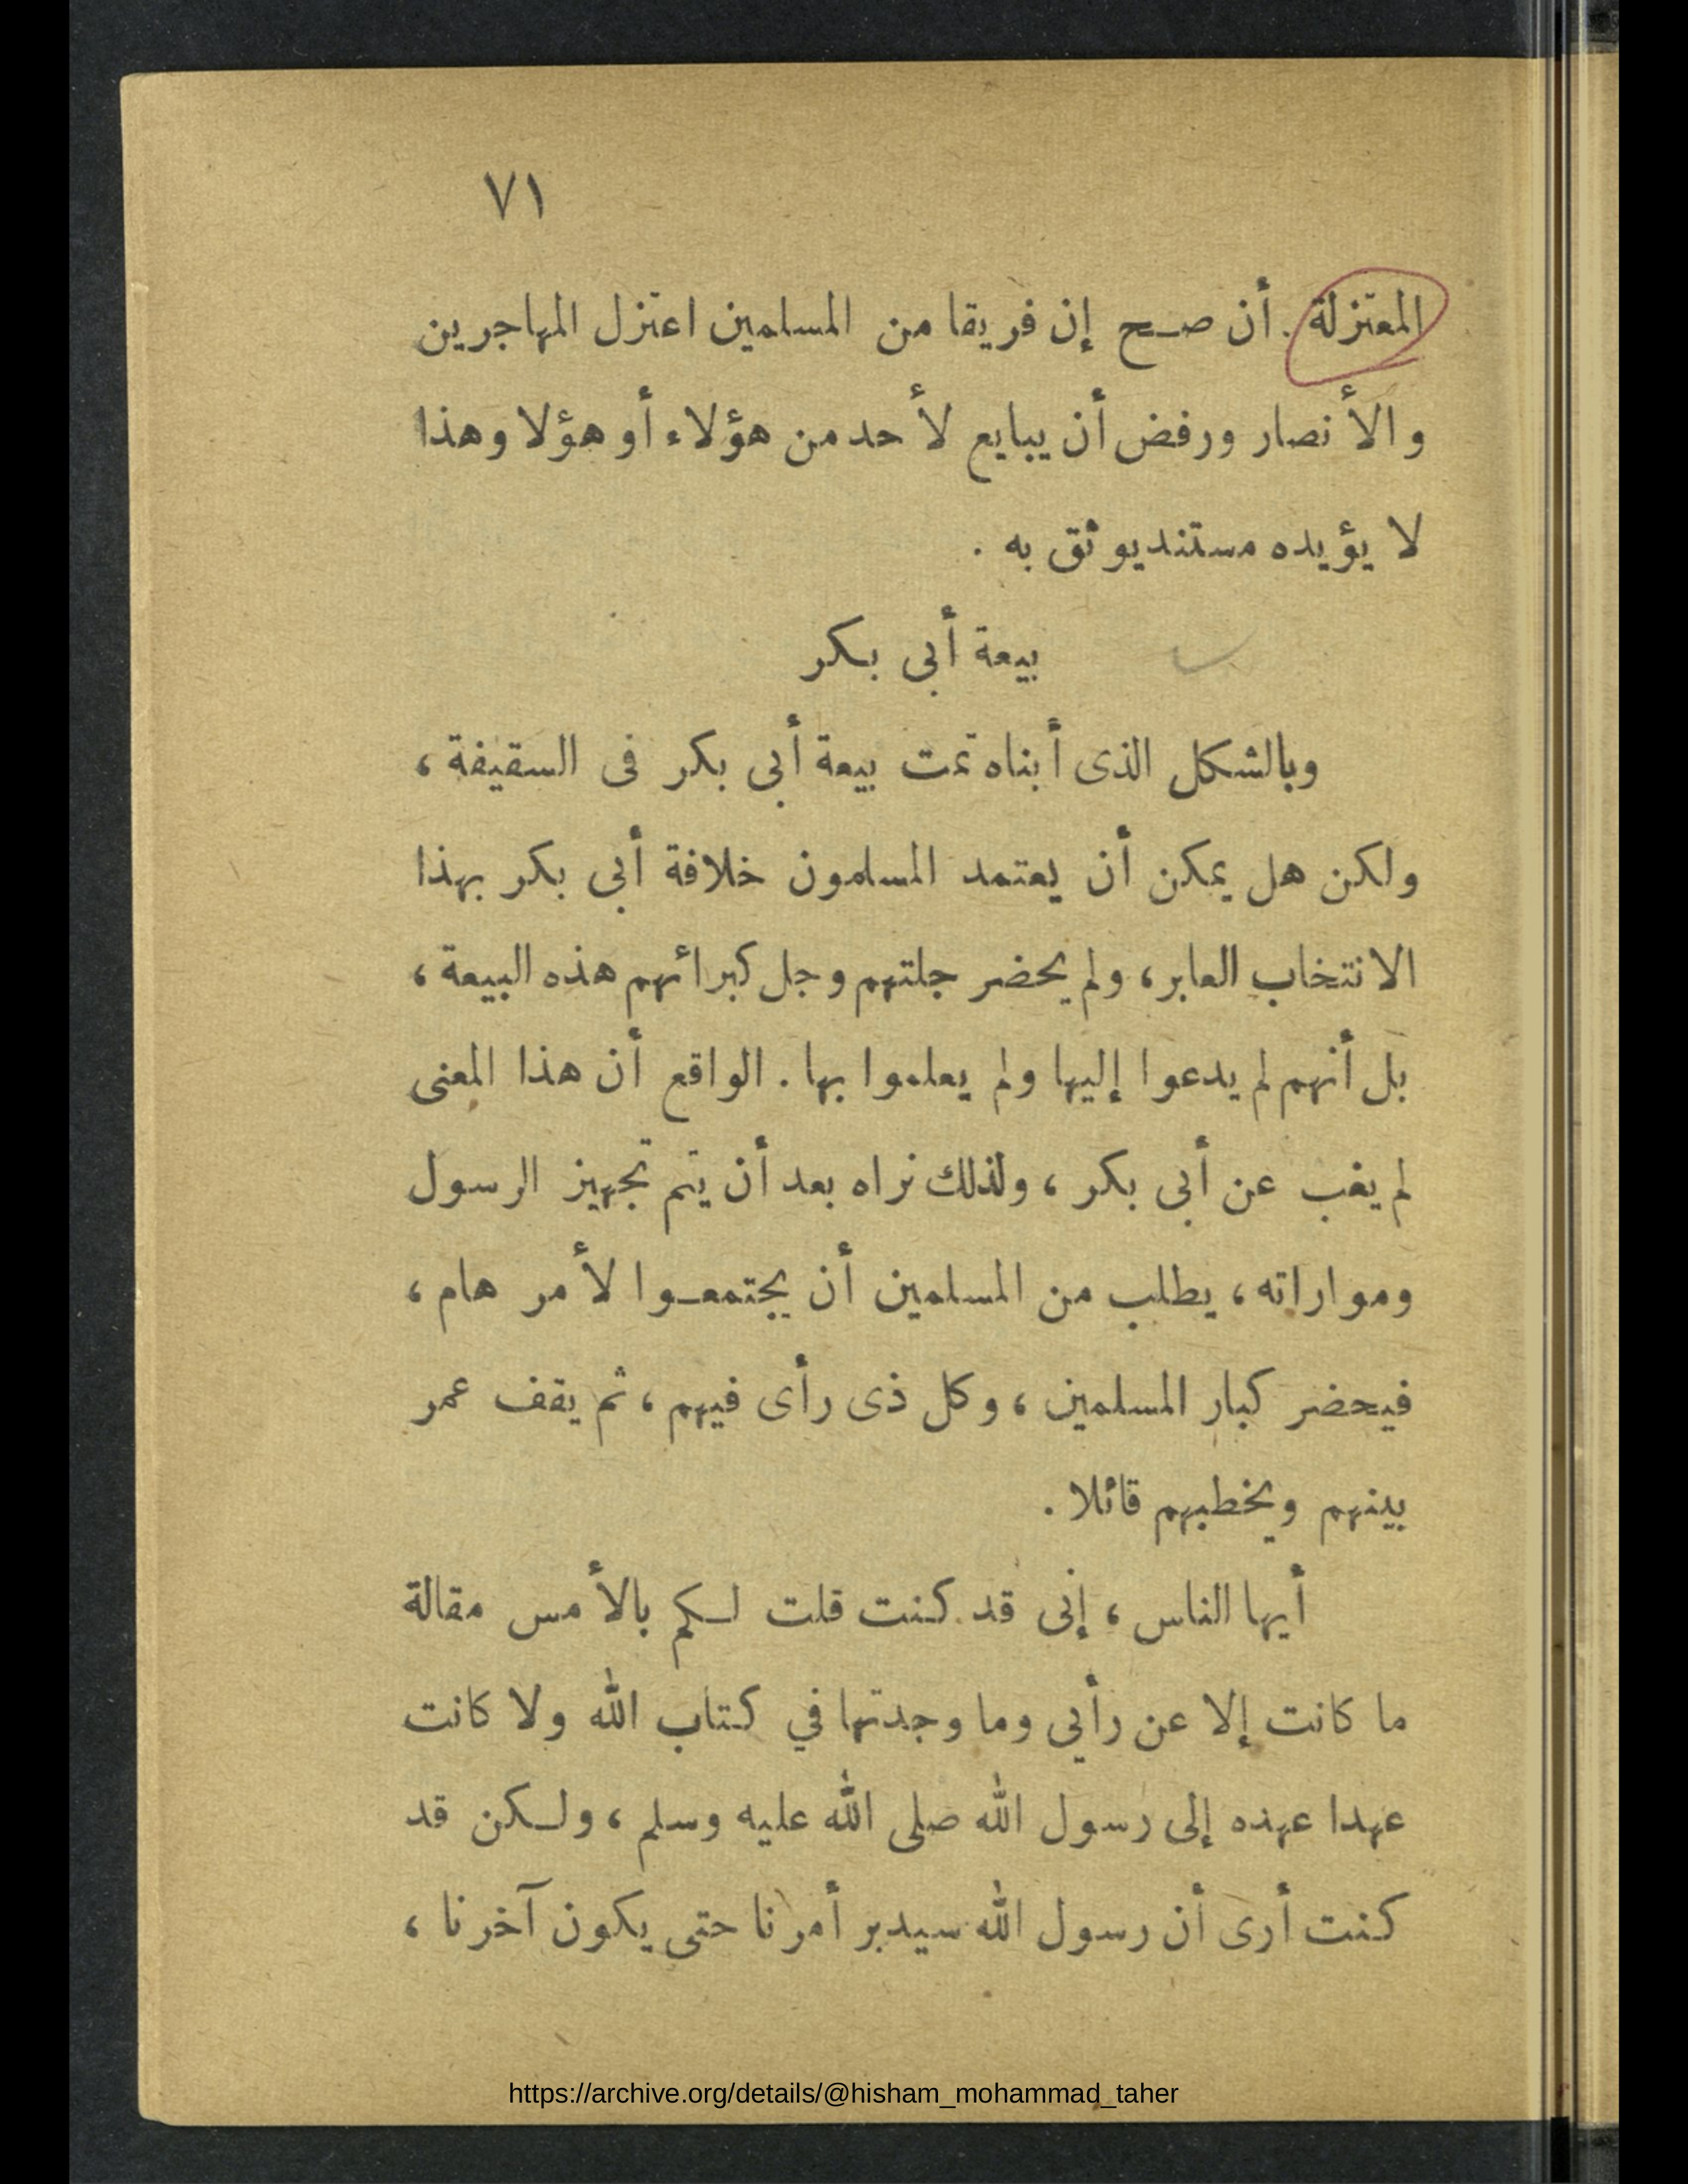 ٧١
المعتزلة . أن صح إن فريقا من المسلمين اعتزل المهاجرين
والأنصار ورفض أن يبايع لأحد من هؤلاء أو هؤلا وهذا
لا يؤيده مستند يوثق به .
بيعة أبى بكر
وبالشكل الذى أبناه تمت بيعة أبى بكر فى السقيفة ،
ولكن هل يمكن أن يعتمد المسلمون خلافة أبى بكر بهذا
الانتخاب العابر ، ولم يحضر جلتهم وجل كبرائهم هذه البيعة ،
بل أنهم لم يدعوا إليها ولم يعلموا بها . الواقع أن هذا المعنى
لم يغب عن أبى بكر ، ولذلك نراه بعد أن يتم تجهيز الرسول
ومواراته ، يطلب من المسلمين أن يجتمعوا لأمر هام ،
فيحضر كبار المسلمين ، وكل ذى رأى فيهم ، ثم يقف عمر
بينهم ويخطبهم قائلا .
أيها الناس ، إنى قد كنت قلت لكم بالأمس مقالة
ما كانت إلا عن رأيى وما وجدتها في كتاب الله ولا كانت
عهدا عهده إلى رسول الله صلى الله عليه وسلم ، ولكن قد
كنت أرى أن رسول الله سيدبر أمرنا حتى يكون آخرنا ،
https://archive.org/details/@hisham_mohammad_taher